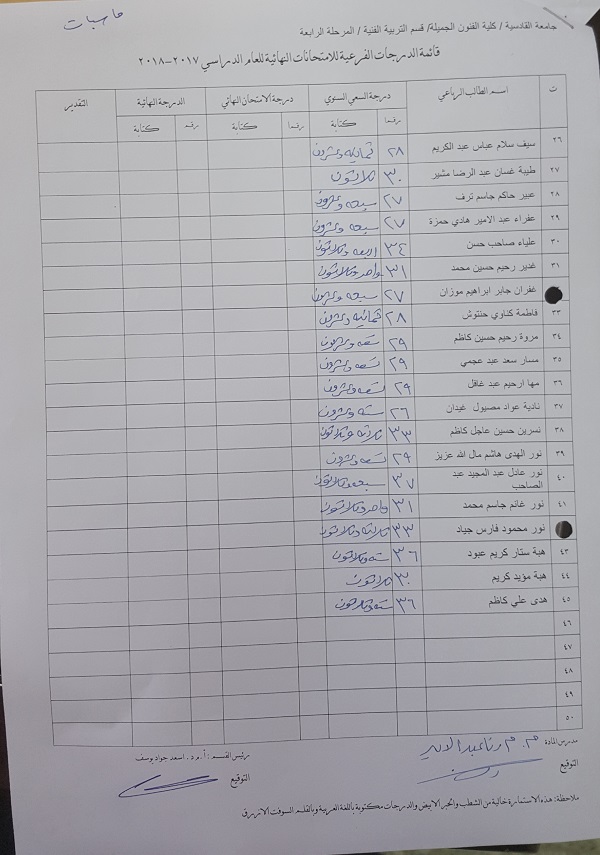 حاسبات
جامعة القادسية / كلية الفنون الجميلة/ قسم التربية الفنية / المرحلة الرابعة
قائمة الدرجات الفرعية للامتحانات النهائية للعام الدراسي ٢٠١٧-٢٠١٨
ت اسم الطالب الرباعي درجة السعي السنوي درجة الامتحان النهائي الدرجة النهائية التقدير
رقما كتابة رقما كتابة رقما كتابة
٢٦ سيف سلام عباس عبد الكريم ٢٨ ثمانيه وعشرون
٢٧ طيبة غسان عبد الرضا مشير ٣٠ ثلاثون
٢٨ عبير حاكم جاسم ترف ٢٧ سبعه وعشرون
٢٩ عفراء عبد الامير هادي حمزة ٢٧ سبعه وعشرون
٣٠ علياء صاحب حسن ٣٤ اربعه وثلاثون
٣١ غدير رحيم حسين محمد ٣١ واحد وثلاثون
غفران جابر ابراهيم موزان ٢٧ سبعه وعشرون
٣٣ فاطمة كناوي حنتوش ٢٨ ثمانيه وعشرون
٣٤ مروة رحيم حسين كاظم ٢٩ تسعه وعشرون
٣٥ مسار سعد عبد عجمي ٢٩ تسعه وعشرون
٣٦ مها ارحيم عبد غافل ٢٩ تسعه وعشرون
٣٧ نادية عواد مصيول غيدان ٢٦ سته وعشرون
٣٨ نسرين حسين عاجل كاظم ٣٣ ثلاثه وثلاثون
٣٩ نور الهدى هاشم مال الله عزيز ٢٩ تسعه وعشرون
٤٠ نور عادل عبد المجيد عبد الصاحب ٣٧ سبعه وثلاثون
٤١ نور غانم جاسم محمد ٣١ واحد وثلاثون
نور محمود فارس جياد ٣٣ ثلاثه وثلاثون
٤٣ هبة ستار كريم عبود ٣٦ سته وثلاثون
٤٤ هبة مؤيد كريم ٣٠ ثلاثون
٤٥ هدى علي كاظم ٣٦ سته وثلاثون
٤٦
٤٧
٤٨
٤٩
٥٠
مدرس المادة م.م رنا عبد الامير
رئيس القسم : أ.م.د. اسعد جواد يوسف
التوقيع
التوقيع
ملاحظة: هذه الاستمارة خالية من الشطب والحبر الابيض والدرجات مكتوبة باللغة العربية وبالقلم السوفت الازرق